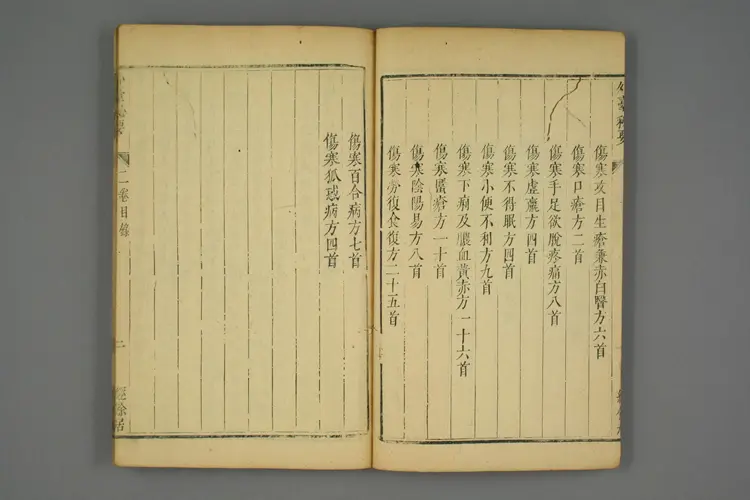 傷寒攻目生瘡兼赤白瞖方六首
傷寒口瘡方二首
傷寒手足欲脫疼痛方八首
傷寒虛羸方四首
傷寒不得眠方四首
傷寒小便不利方九首
傷寒下痢及膿血黃赤方一十六首
傷寒䘌瘡方一十首
傷寒陰陽易方八首
傷寒勞復食復方二十五首
傷寒百合病方七首
傷寒狐惑病方四首
二卷目錄
二
經餘居